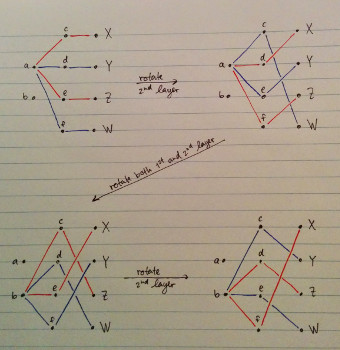 c X c X
a d Y a d Y
rotate
2nd layer
b e Z b e Z
f W f W
rotate both 1st and 2nd layer
c X c X
a d Y a d Y
rotate
2nd layer
b e Z b e Z
f W f W